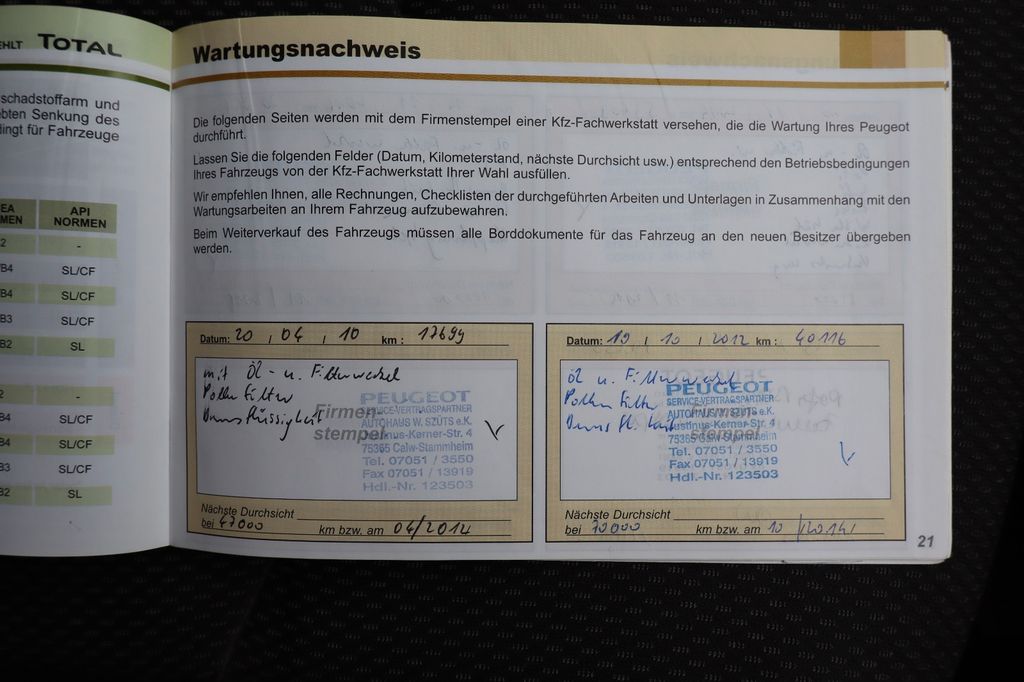 EHLT TOTAL
schadstoffarm und
ebten Senkung des
dingt für Fahrzeuge
EA
MEN
API
NORMEN
2 -
B4 SL/CF
B4 SL/CF
B3 SL/CF
B2 SL
2 -
B4 SL/CF
B4 SL/CF
B3 SL/CF
B2 SL
Wartungsnachweis
Die folgenden Seiten werden mit dem Firmenstempel einer Kfz-Fachwerkstatt versehen, die die Wartung Ihres Peugeot
durchführt.
Lassen Sie die folgenden Felder (Datum, Kilometerstand, nächste Durchsicht usw.) entsprechend den Betriebsbedingungen
Ihres Fahrzeugs von der Kfz-Fachwerkstatt Ihrer Wahl ausfüllen.
Wir empfehlen Ihnen, alle Rechnungen, Checklisten der durchgeführten Arbeiten und Unterlagen in Zusammenhang mit den
Wartungsarbeiten an Ihrem Fahrzeug aufzubewahren.
Beim Weiterverkauf des Fahrzeugs müssen alle Borddokumente für das Fahrzeug an den neuen Besitzer übergeben
werden.
Datum: 20 / 04 / 10 km : 17699
mit Öl - u. Filterwechsel
Pollen Filter
Bremsflüssigkeit
Firmen-
stempel
PEUGEOT
SERVICE-VERTRAGSPARTNER
AUTOHAUS W. SZÜTS e.K.
Justinus-Kerner-Str. 4
75365 Calw-Stammheim
Tel. 07051 / 3550
Fax 07051 / 13919
Hdl.-Nr. 123503
Nächste Durchsicht
bei 47000 km bzw. am 04/2014
Datum: 10 / 10 / 2012 km : 40116
Öl u. Filterwechsel
Pollen Filter
Firmen-
stempel
PEUGEOT
SERVICE-VERTRAGSPARTNER
AUTOHAUS W. SZÜTS e.K.
Justinus-Kerner-Str. 4
75365 Calw-Stammheim
Tel. 07051 / 3550
Fax 07051 / 13919
Hdl.-Nr. 123503
Nächste Durchsicht
bei 70000 km bzw. am 10 /2014
21